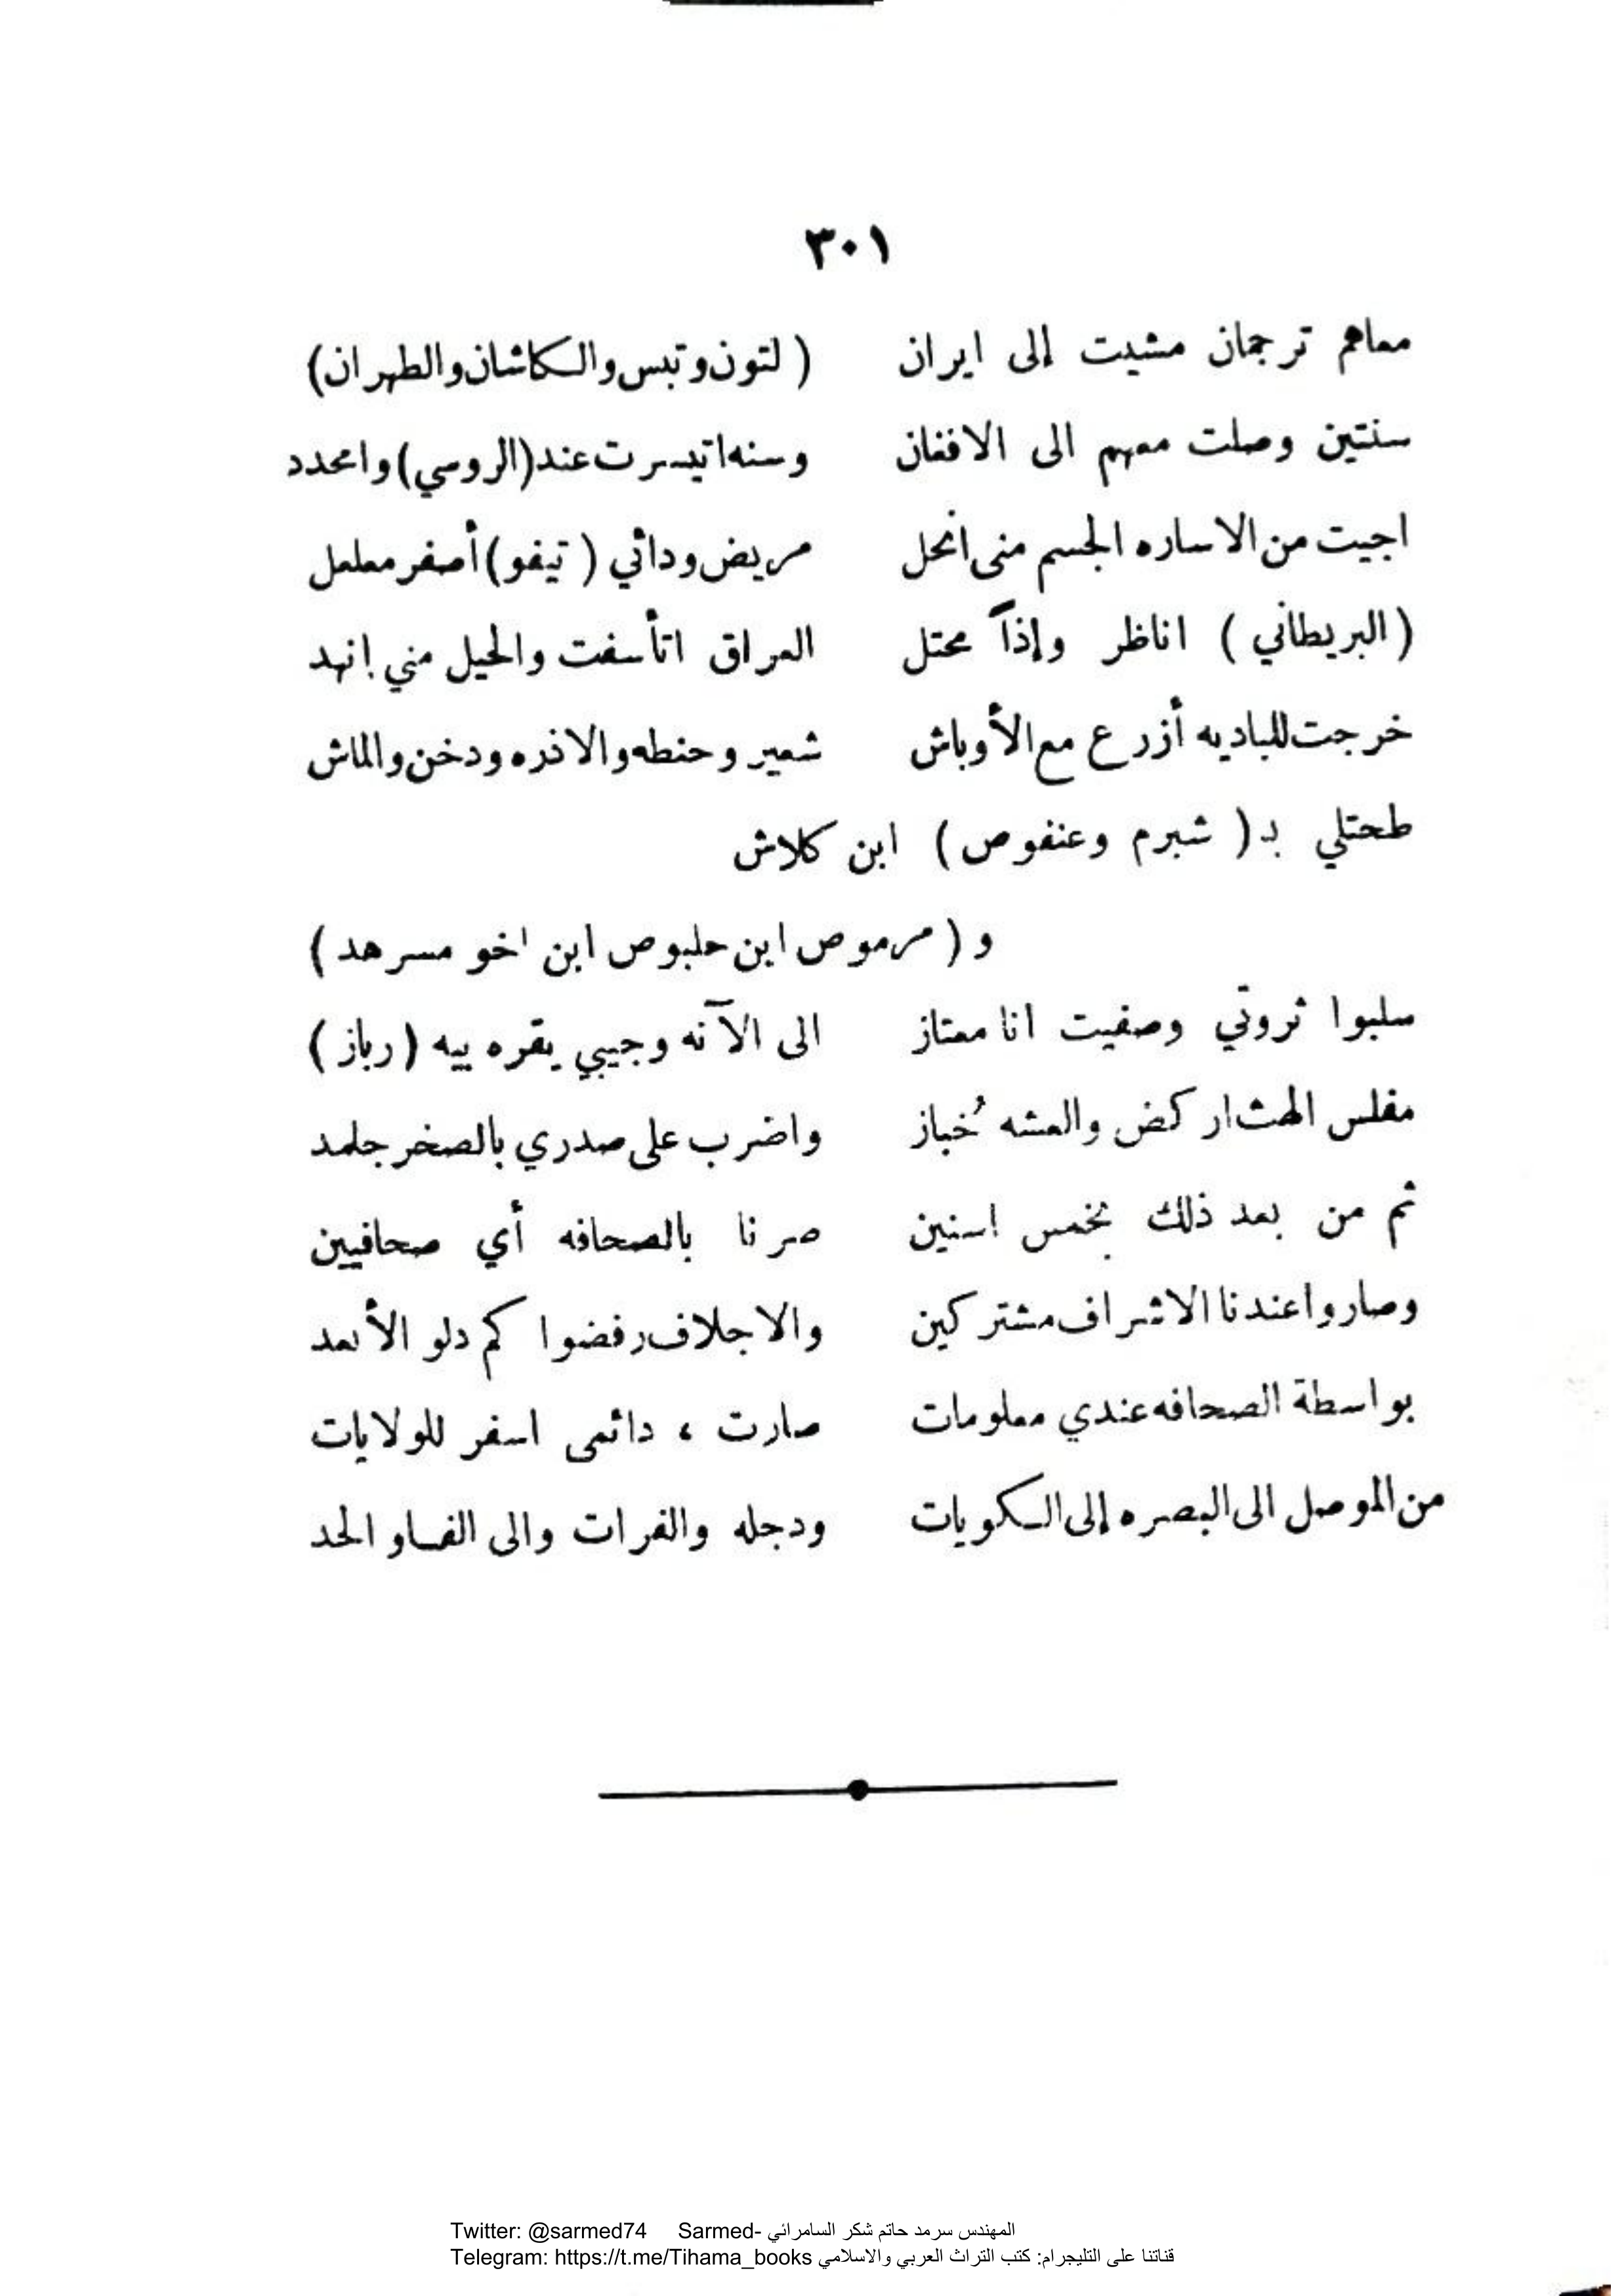 ٣٠١
معاهم ترجمان مشيت إلى ايران ( لتون وتبس والكاشان والطهران)
سنتين وصلت معهم الى الافغان وسنه اتيسرت عند (الروسي) وامحدد
اجيت من الاساره الجسم منى انحل مريض ودائي ( تيفو) أصفر معلعل
(البريطاني ) اناظر وإذاً محتل العراق اتأسفت والحيل مني انهد
خرجت للباديه أزرع مع الأوباش شعير وحنطه والاذره ودخن والماش
طحتلي بـ( شبرم وعنفوص ) ابن كلاش
و ( مرموص ابن حلبوص ابن اخو مسرهد )
سلبوا ثروتي وصفيت انا ممتاز الى الآنه وجيبي يقره بيه (رباز )
مفلس الهث اركض والعشه خُباز واضرب على صدري بالصخر جلمد
ثم من بعد ذلك بخمس اسنين صرنا بالصحافه أي صحافيين
وصاروا عندنا الاشراف مشتركين والاجلاف رفضوا كم دلو الأبعد
بواسطة الصحافه عندي معلومات صارت ، دائمى اسفر للولايات
من الموصل الى البصره إلى الكويات ودجله والفرات والى الفاو الحد
Twitter: @sarmed74 Sarmed- المهندس سرمد حاتم شكر السامرائي
Telegram: https://t.me/Tihama_books قناتنا على التليجرام: كتب التراث العربي والاسلامي